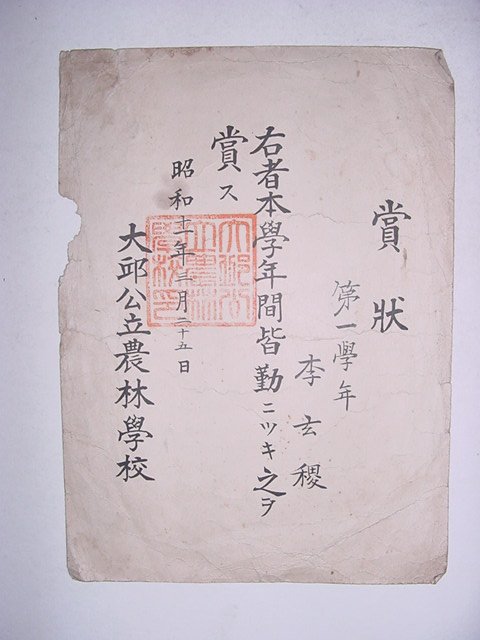 賞狀
第一學年
李玄稷
右者本學年間皆勤ニツキ之ヲ
賞ス
昭和十一年三月二十五日
大邱公立農林學校